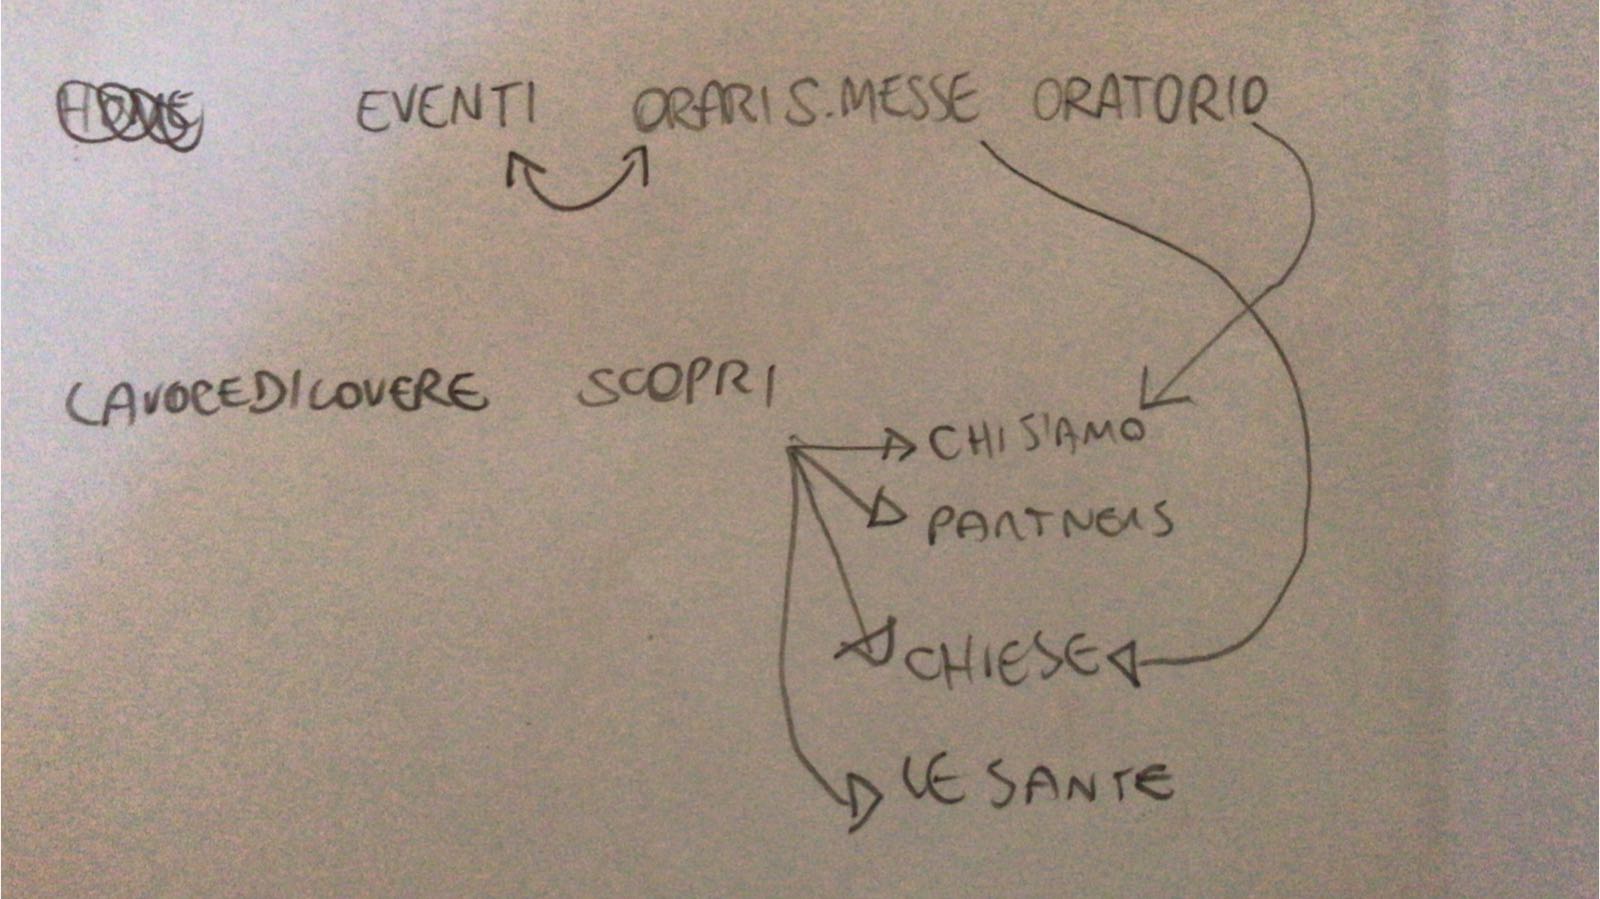 EVENTI ORARI S.MESSE ORATORIO
LAVOCEDILOVERE SCOPRI
CHI SIAMO
PARTNERS
CHIESE
LE SANTE